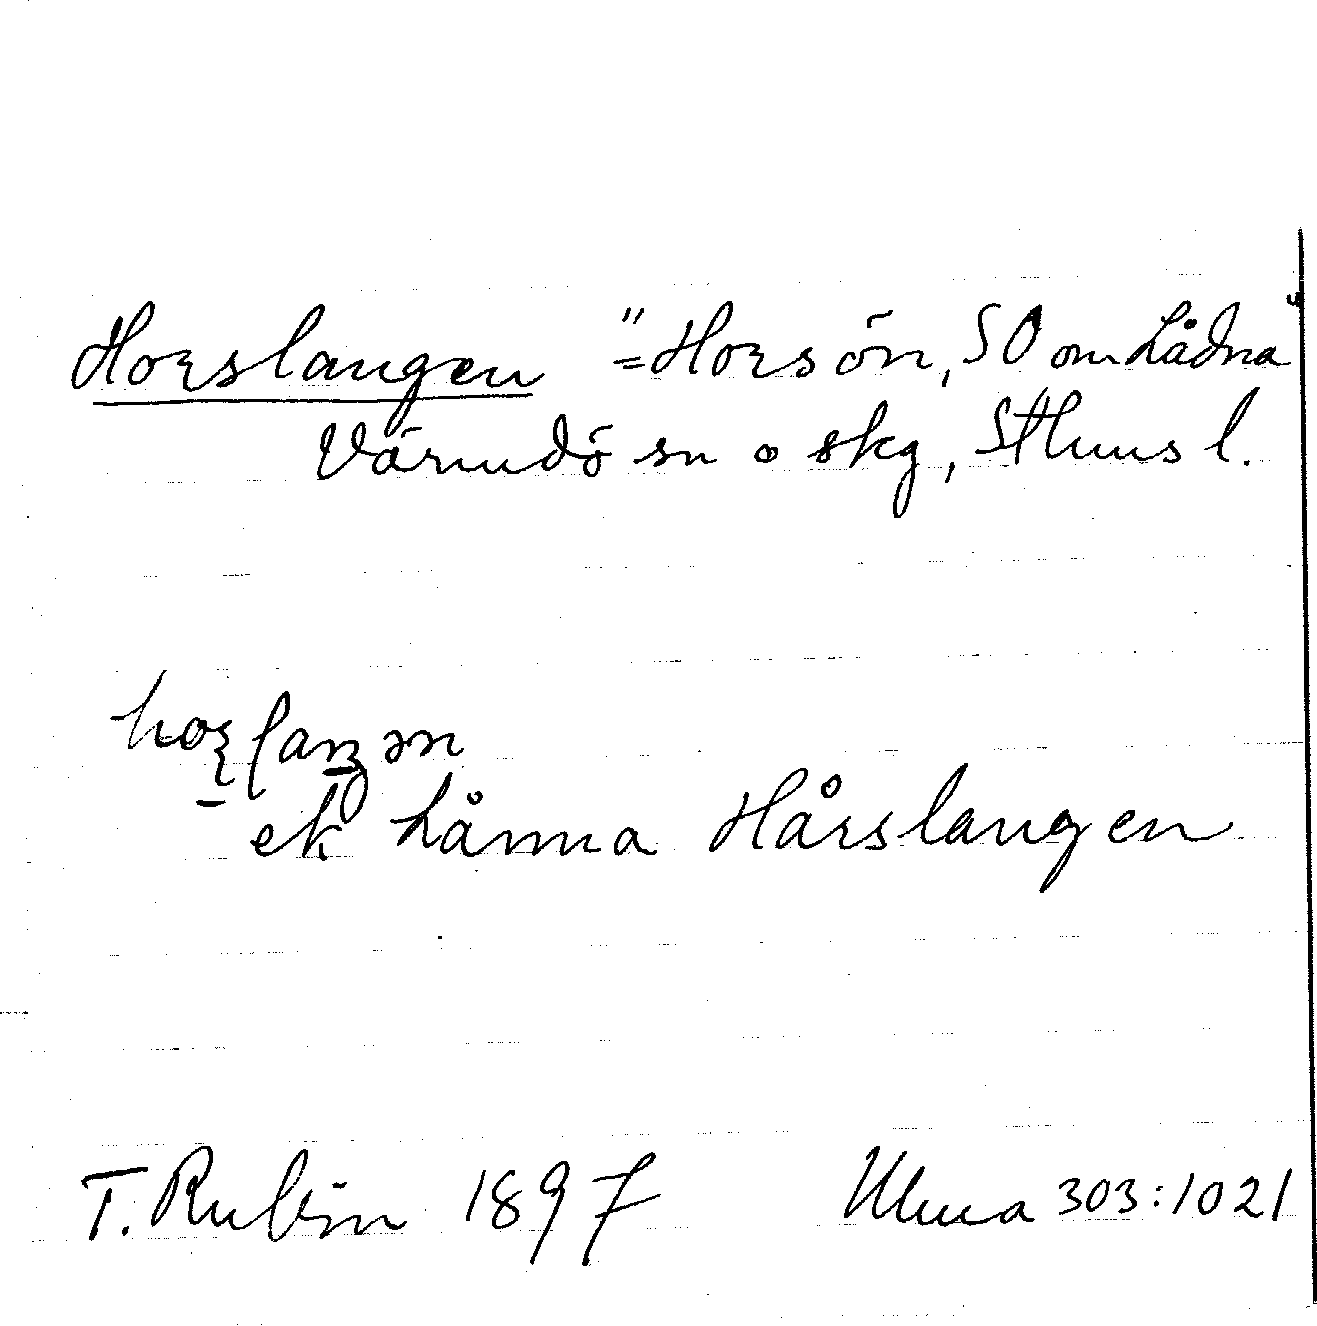 Horslangen "=Horsön, SO om Lådna"
Värmdö sn o skg, Sthms l.
ek Lånna Hårslangen
T. Rubin 1897 Uluma 303:1021